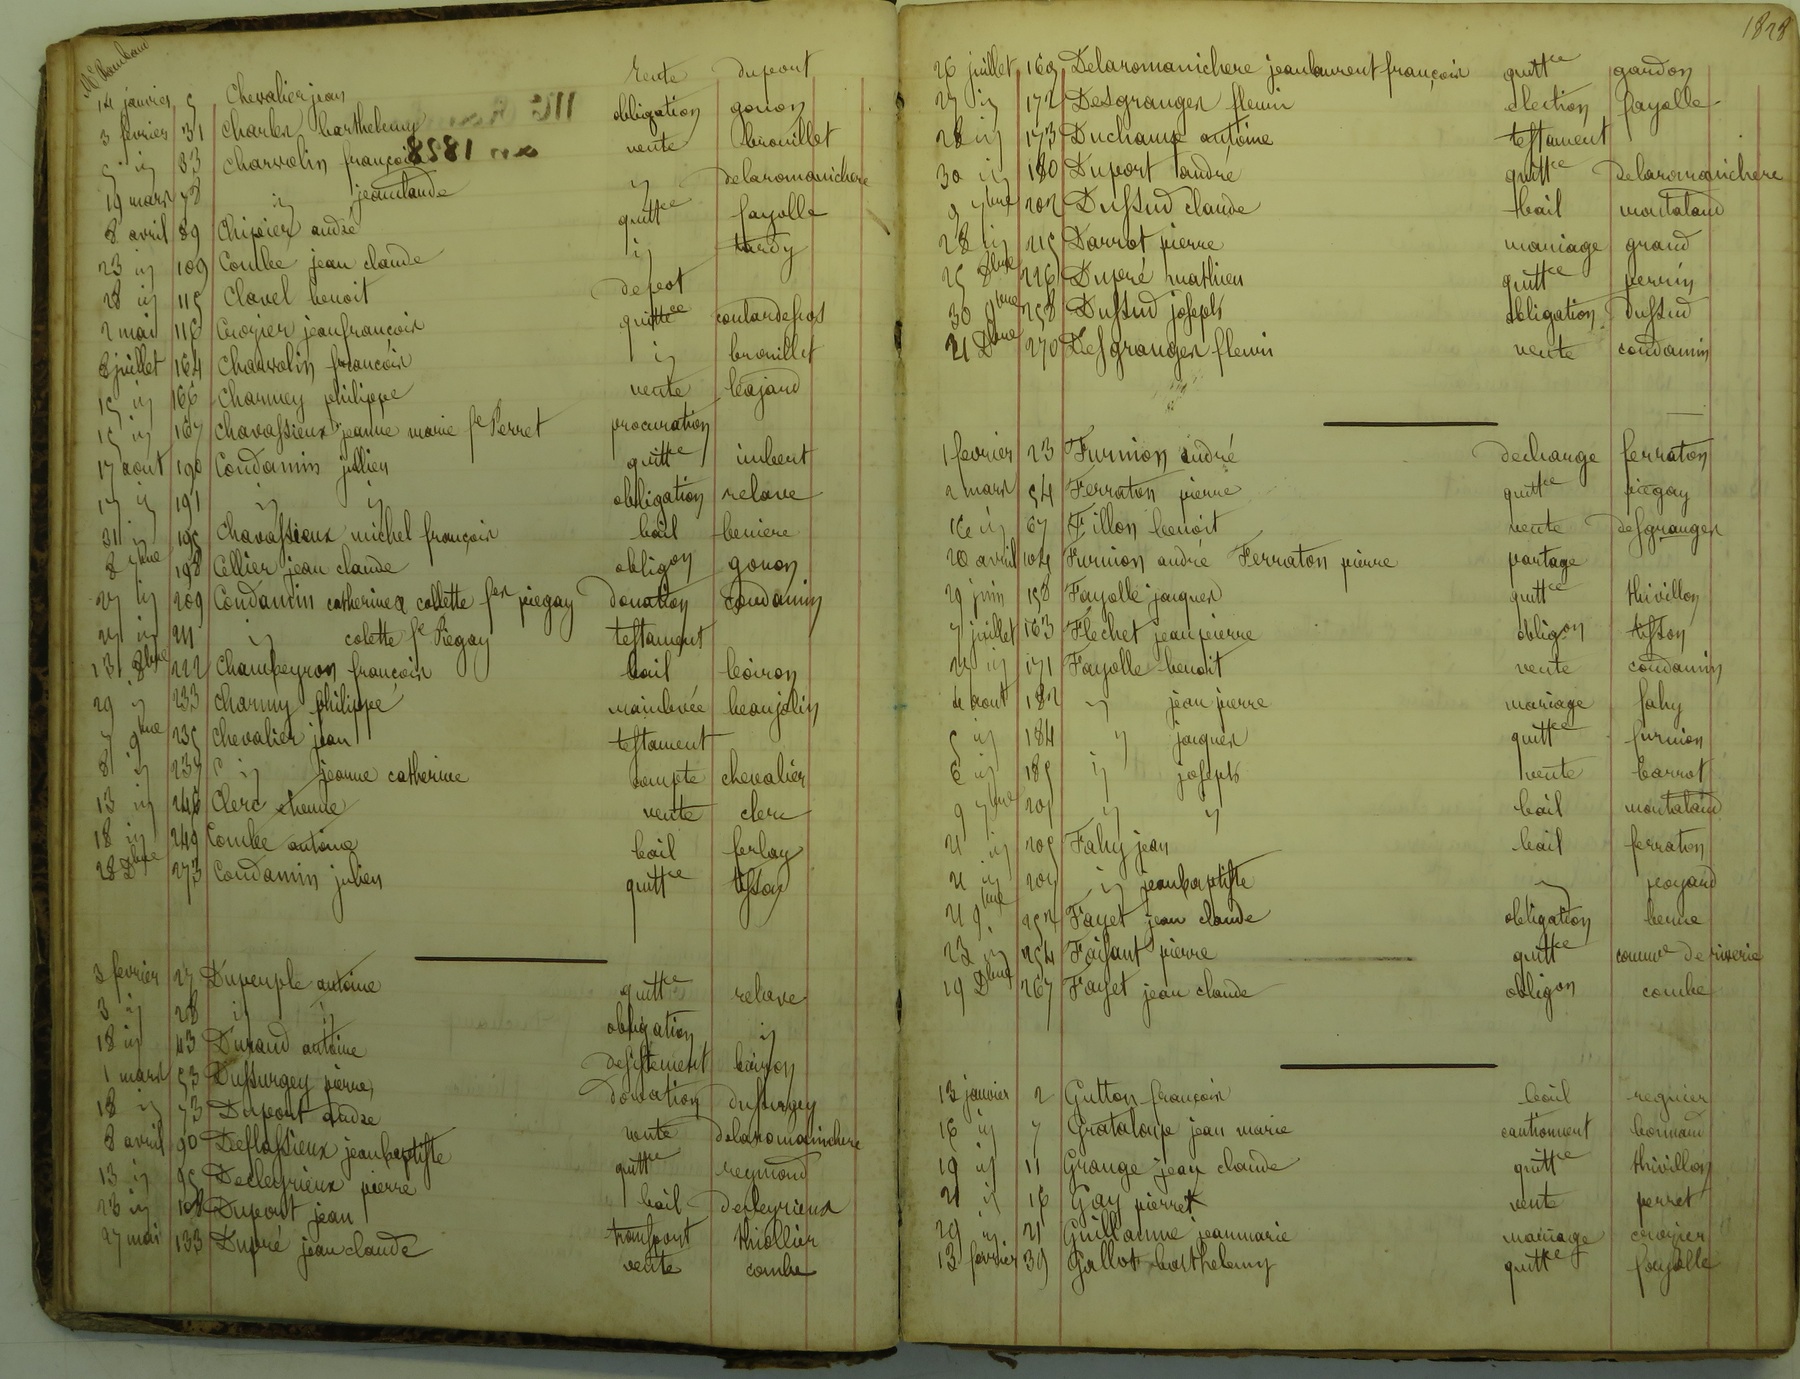 1828
14 janvier 5 Chevalier jean vente dupont
3 fevrier 31 Charles barthelemy obligation gonon
5 id 33 Charvolin françois vente brouillet
19 mars 78 id jeanclaude id delaromanichere
8 avril 89 Chipier andré quittce fayolle
23 id 109 Combe jean claude id tardy
28 id 115 Clavel benoit depot
2 mai 118 Crozier jeanfrançois quittce coulardefros
8 juillet 164 Charvolin françois id brouillet
15 id 166 Charmey philippe vente bajard
15 id 167 Chavassieux jeanne marie fe Perret procuration
17 aout 190 Condamin jullien quittce imbert
17 id 191 id id obligation relave
31 id 195 Chavassieux michel françois bail beniere
8 7bre 198 Cellier jean claude obligon gonon
27 id 209 Condamin catherine & collette fes piegay donation condamin
27 id 211 id colette fe Piegay testament
13 8bre 222 Champeyron françois bail boiron
29 id 233 Charmy philippe mainlevée beaujolin
7 9bre 235 Chevalier jean testament
8 id 237 id jeanne catherine compte chevalier
13 id 246 Clerc etienne vente clerc
18 id 249 Combe antoine bail ferlay
28 Dbre 273 Condamin julien quittce tisson
3 fevrier 27 Dupeuple antoine quittce relave
3 id 28 id id obligation id
18 id 43 Durand antoine desistement boiron
1 mars 53 Dussurgey pierre donation dussurgey
18 id 73 Dupont andre vente delaromanichere
8 avril 90 Desflassieux jeanbaptiste quittce reymond
13 id 95 Decleyrieux pierre bail decleyrieux
23 id 108 Dupont jean transport thiollier
27 mai 133 Dupré jean claude vente combe
26 juillet 169 Delaromanichere jeanlaurent françois quittce gardon
27 id 172 Desgranges fleuri election fayolle
28 id 173 Duchamp antoine testament
30 id 180 Duport andré quittce delaromanichere
9 7bre 202 Dussud claude bail montaland
28 id 215 Darrot pierre mariage grand
25 8bre 226 Dupré mathieu quittce perrin
30 9bre 258 Dussud joseph obligation dussud
21 Dbre 270 Desgranges fleuri vente condamin
1 fevrier 23 Furnion andré decharge ferraton
2 mars 54 Ferraton pierre quittce piegay
16 id 67 Fillon benoit vente desgranges
20 avril 104 Furnion andre Ferraton pierre partage
29 juin 158 Fayolle jacques quittce thivillon
7 juillet 163 Flechet jeanpierre obligon tisson
27 id 171 Fayolle benoit vente condamin
4 aout 182 id jean pierre mariage fahy
5 id 184 id jacques quittce furnion
6 id 185 id joseph vente barrot
9 7bre 201 id id bail montaland
21 id 205 Fahy jean bail ferraton
21 id 207 id jeanbaptiste id poyard
21 9bre 252 Fayet jean claude obligation berne
23 id 254 Faisant pierre quittce commue de riverie
19 Dbre 267 Fayet jean claude obligon combe
13 janvier 2 Gutton françois bail regnier
16 id 7 Grataloup jean marie cautionnent bonnand
19 id 11 Grange jean claude quittce thivillon
21 id 16 Gay pierre vente perret
29 id 21 Guillaume jeanmarie mariage crozier
13 fevrier 39 Gallot barthelemy quittce fayolle